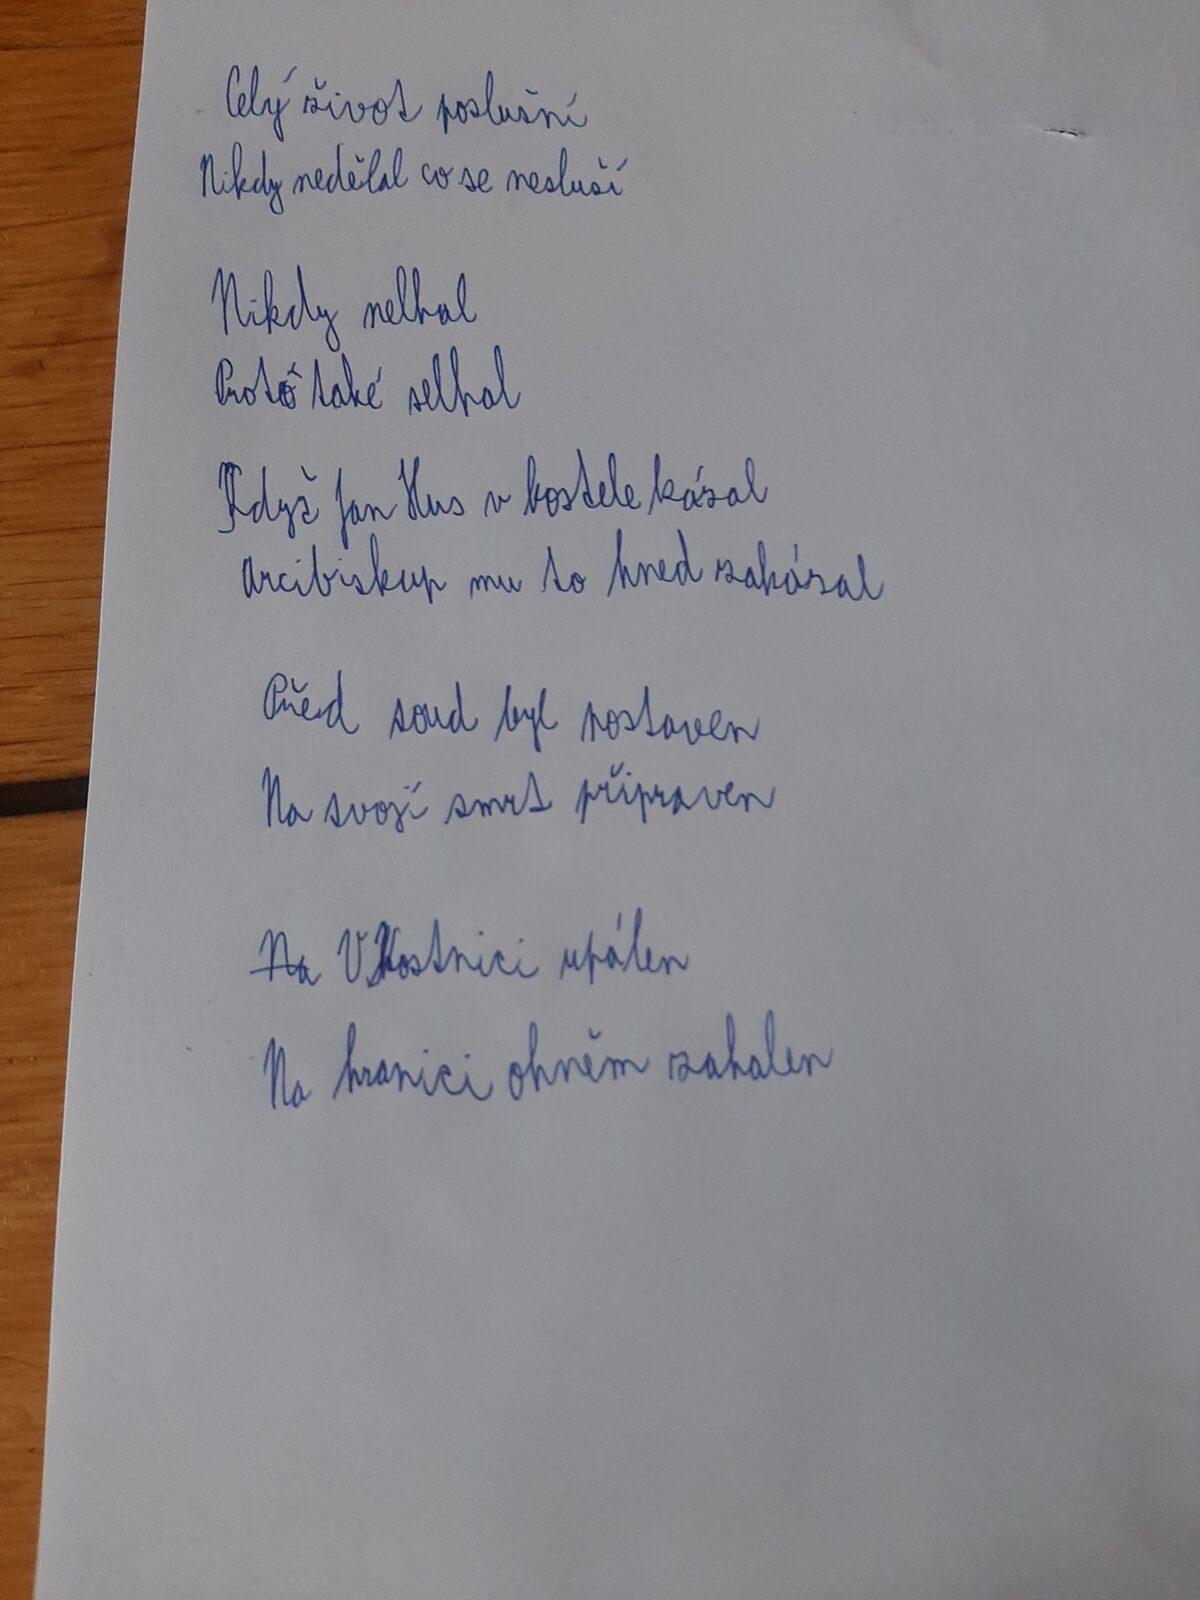 Celý život poslušní
Nikdy nedělal co se nesluší
Nikdy nelhal
Proto také selhal
Když Jan Hus v kostele kázal
arcibiskup mu to hned zakázal
Před soud byl postaven
Na svojí smrt připraven
Na V Kostnici upálen
Na hranici ohněm zahalen